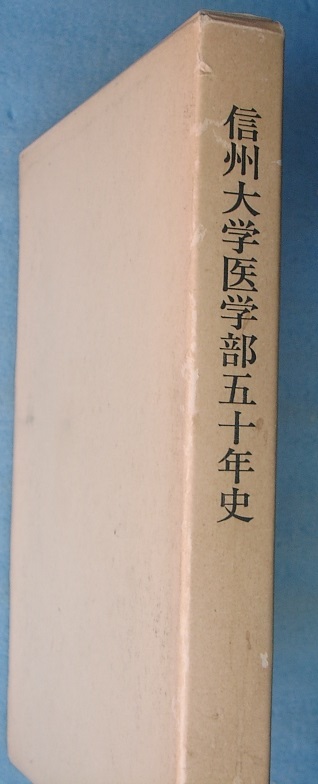 信州大学医学部五十年史